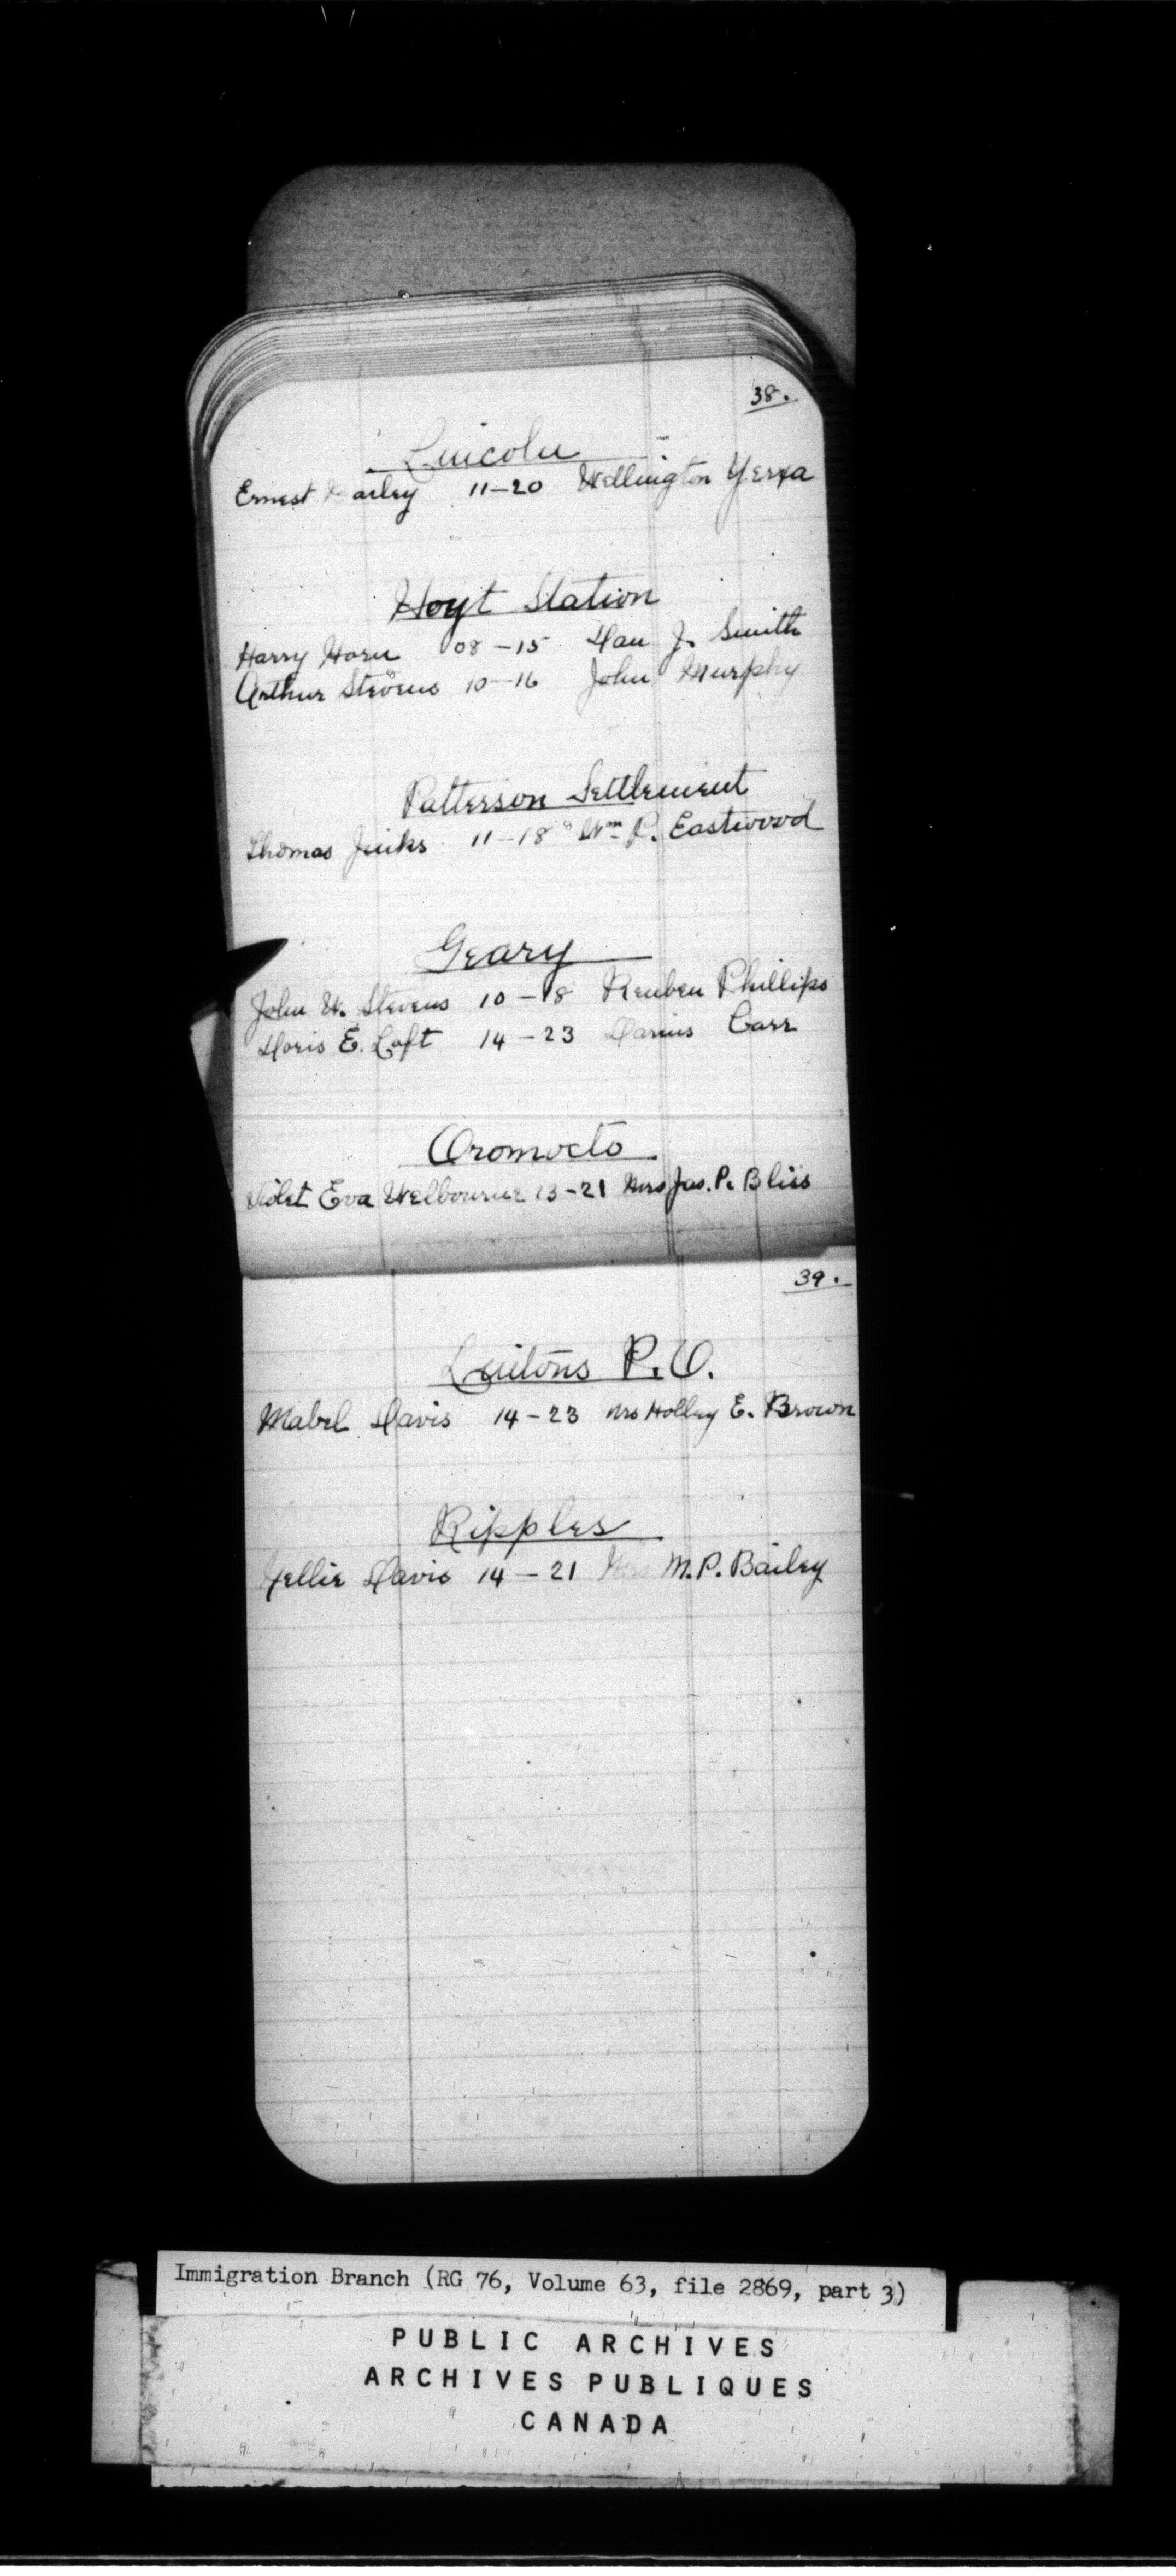 38.
Lincoln
Ernest Bailey 11-20 Wellington Yerxa
Hoyt Station
Harry Horn 08-15 Dan J. Smith
Arthur Stevens 10-16 John Murphy
Patterson Settlement
Thomas Jinks 11-18 Wm P. Eastwood
Geary
John W. Stevens 10-18 Reuben Phillips
Doris E. Loft 14-23 Darius Carr
Oromocto
Violet Eva Welbourne 13-21 Mrs Jas. P. Bliss
39.
P.O.
Mabel Davis 14-23 Mrs Holley E. Brown
Ripples
Nellie Davis 14-21 Mrs M.P. Bailey
Immigration Branch (RG 76, Volume 63, file 2869, part 3)
PUBLIC ARCHIVES
ARCHIVES PUBLIQUES
CANADA